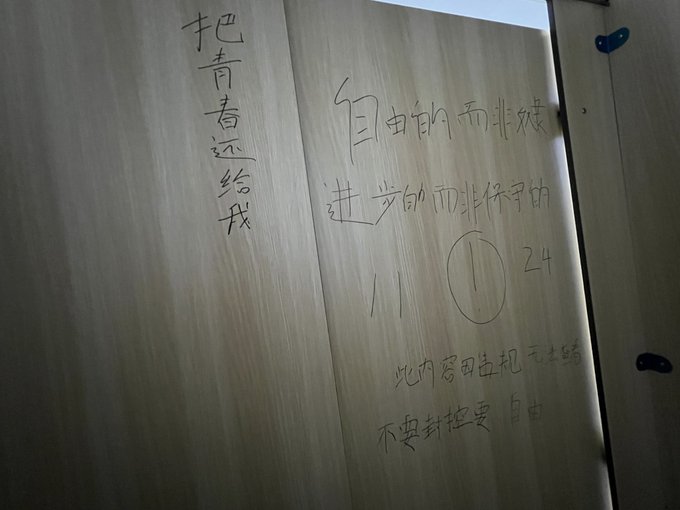 把青春还给我
自由的而非
进步的而非保守的
11 ! 24
此内容因违规无法查看
不要封控要自由